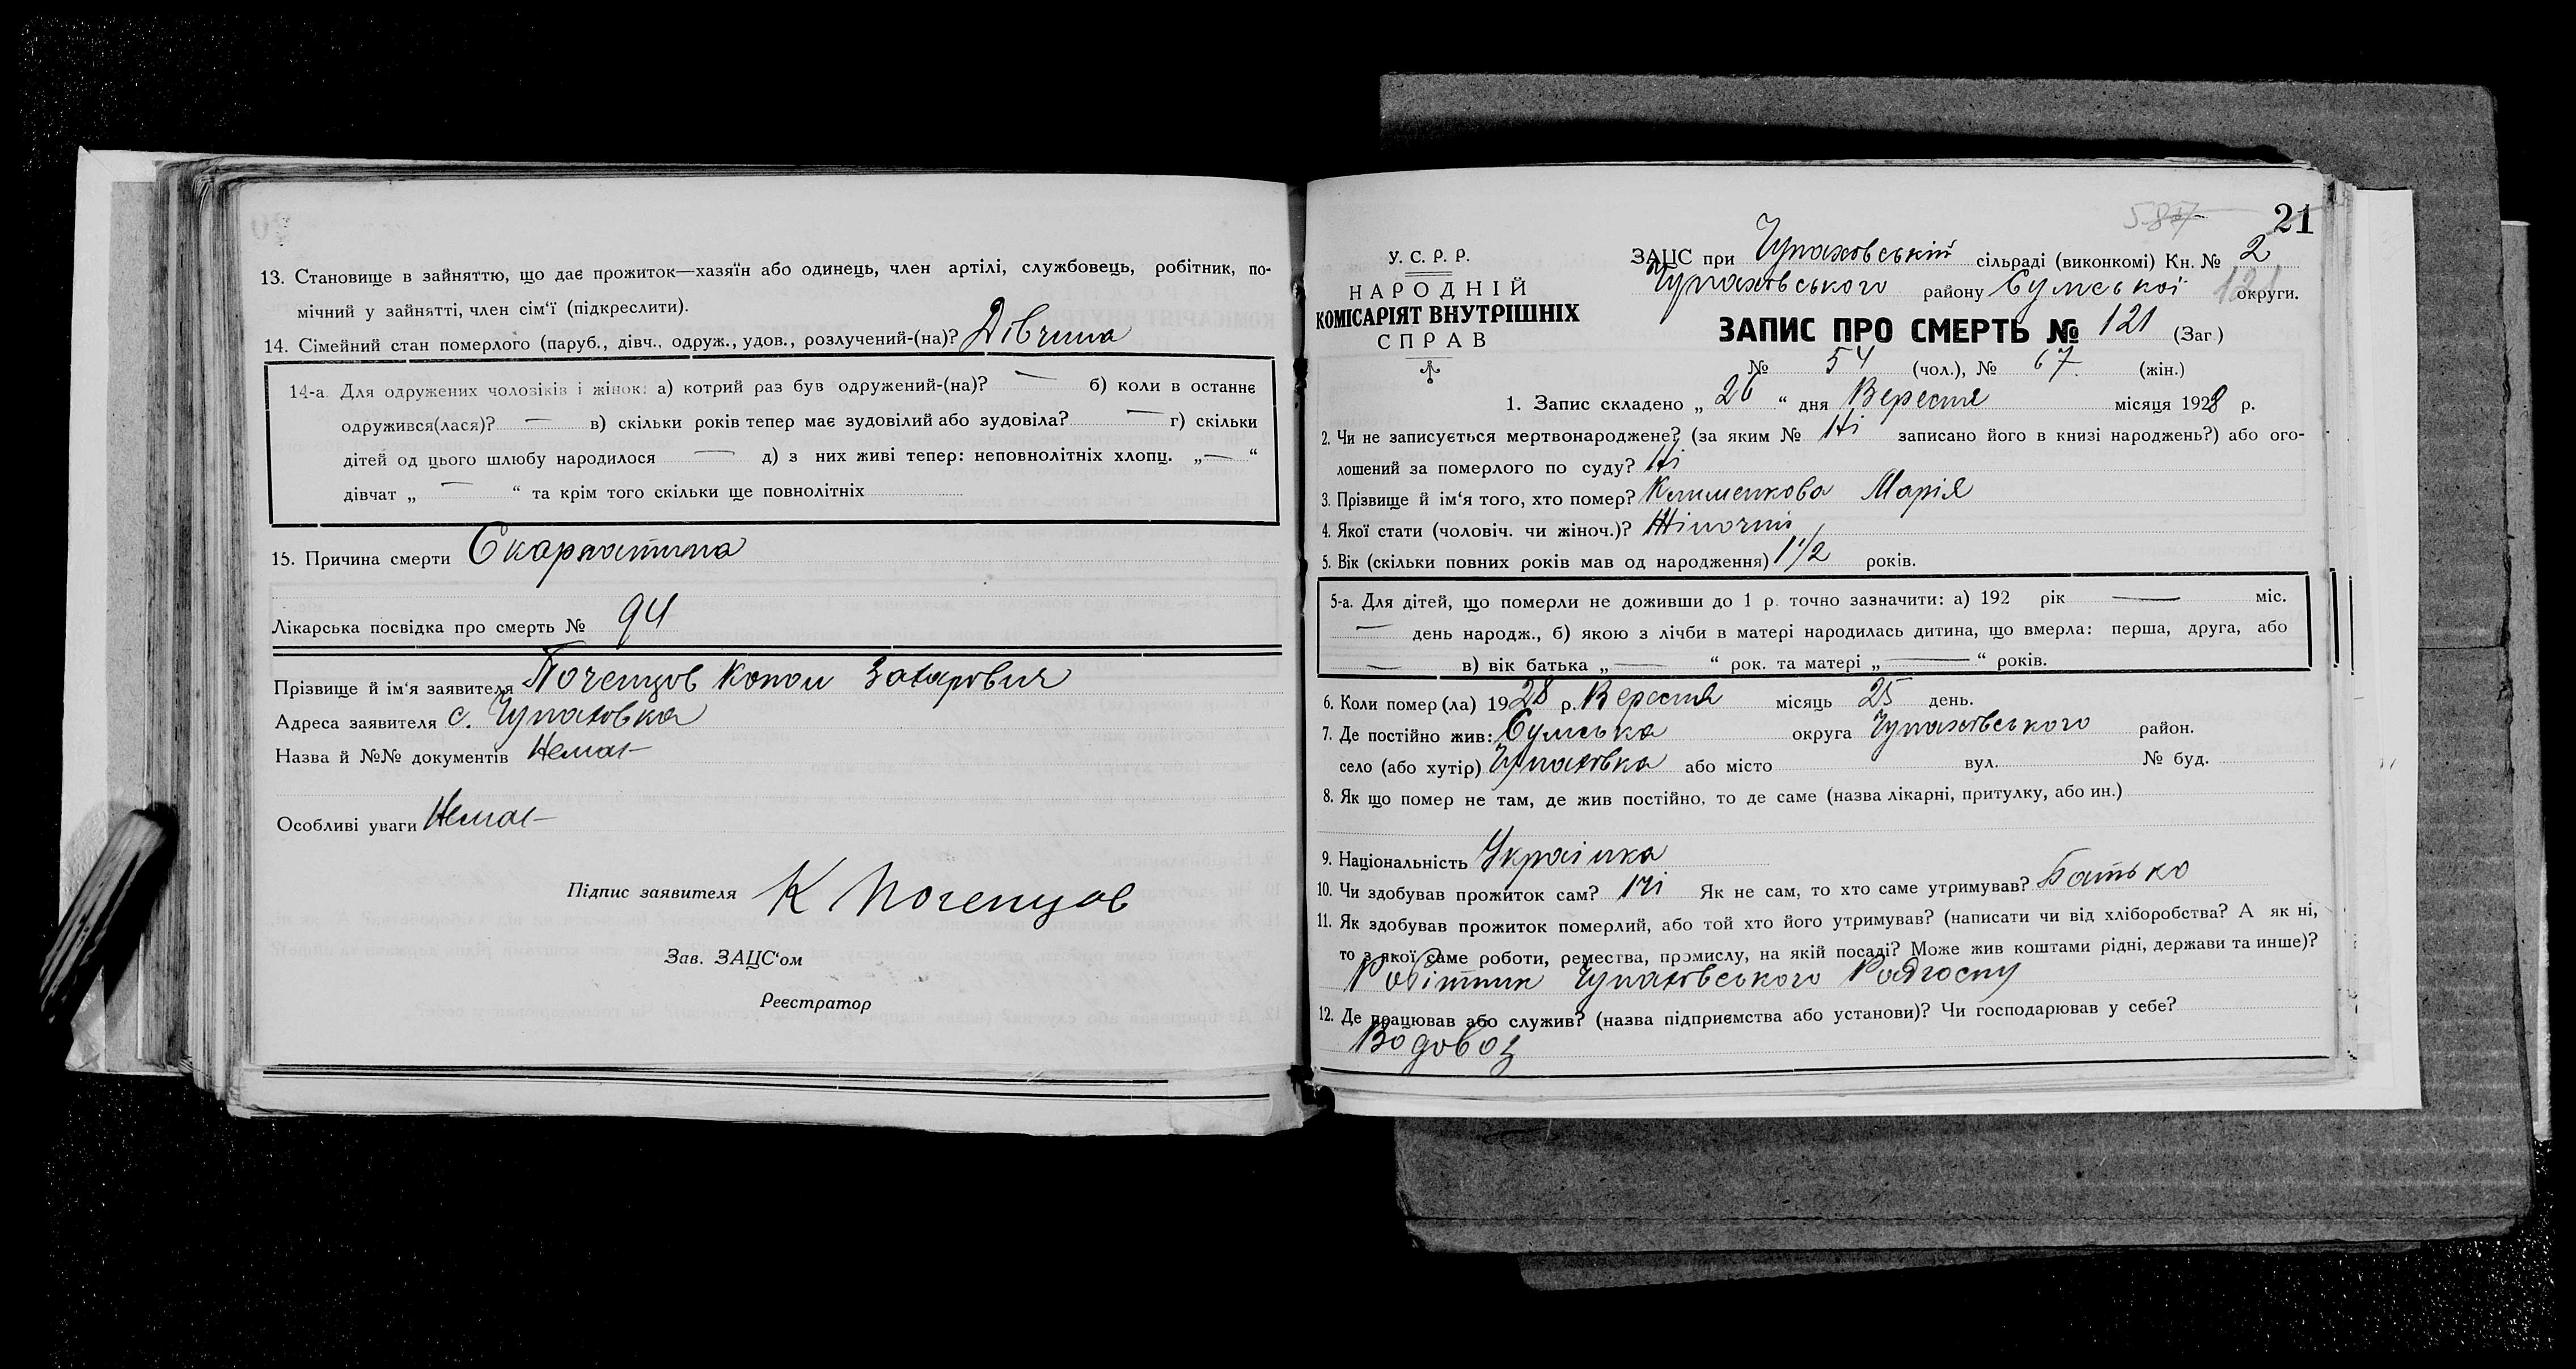 13. Становище в зайняттю, що дає прожиток—хазяїн або одинець, член артілі, службовець, робітник, по-
мічний у зайнятті, член сім'ї (підкреслити).
14. Сімейний стан померлого (паруб., дівч., одруж., удов., розлучений-(на)? Дівчина
14-а. Для одружених чоловіків і жінок: а) котрий раз був одружений-(на)? — б) коли в останнє
одружився(лася)? — в) скільки років тепер має зудовілий або зудовіла? — г) скільки
дітей од цього шлюбу народилося — д) з них живі тепер: неповнолітніх хлопц. „—“
дівчат „ — “ та крім того скільки ще повнолітніх
15. Причина смерти Скарлатина
Лікарська посвідка про смерть № 94
Прізвище й ім'я заявителя Почепцов Конон Захарович
Адреса заявителя с. Чупаховка
Назва й №№ документів Немає
Особливі уваги Немає
Підпис заявителя К Почепцов
Зав. ЗАЦС'ом
Реєстратор
587 21
У. С. Р. Р.
НАРОДНІЙ
КОМІСАРІЯТ ВНУТРІШНІХ
СПРАВ
ЗАЦС при Чупаховській сільраді (виконкомі) Кн. № 2
Чупахівського району Сумської округи. 121
ЗАПИС ПРО СМЕРТЬ № 121 (Заг.)
№ 54 (чол.), № 67 (жін.)
1. Запис складено „ 26 “ дня Вересня місяця 1928 р.
2. Чи не записується мертвонароджене? (за яким № Ні записано його в книзі народжень?) або ого-
лошений за померлого по суду? Ні
3. Прізвище й ім'я того, хто помер? Клименкова Марія
4. Якої стати (чоловіч. чи жіноч.)? Жіночий
5. Вік (скільки повних років мав од народження) 1 1/2 років.
5-а. Для дітей, що померли не доживши до 1 р. точно зазначити: а) 192 рік — міс.
— день народж., б) якою з лічби в матері народилась дитина, що вмерла: перша, друга, або
— в) вік батька „—“ рок. та матері „—“ років.
6. Коли помер (ла) 1928 р. Вересня місяць 25 день.
7. Де постійно жив: Сумська округа Чупахівського район.
село (або хутір) Чупахівка або місто вул. № буд.
8. Як що помер не там, де жив постійно, то де саме (назва лікарні, притулку, або ин.)
9. Національність Українка
10. Чи здобував прожиток сам? Ні Як не сам, то хто саме утримував? Батько
11. Як здобував прожиток померлий, або той хто його утримував? (написати чи від хліборобства? А як ні,
то з якої саме роботи, ремества, промислу, на якій посаді? Може жив коштами рідні, держави та инше)?
Робітник Чупахівського Радгоспу
12. Де працював або служив? (назва підприємства або установи)? Чи господарював у себе?
Водовоз